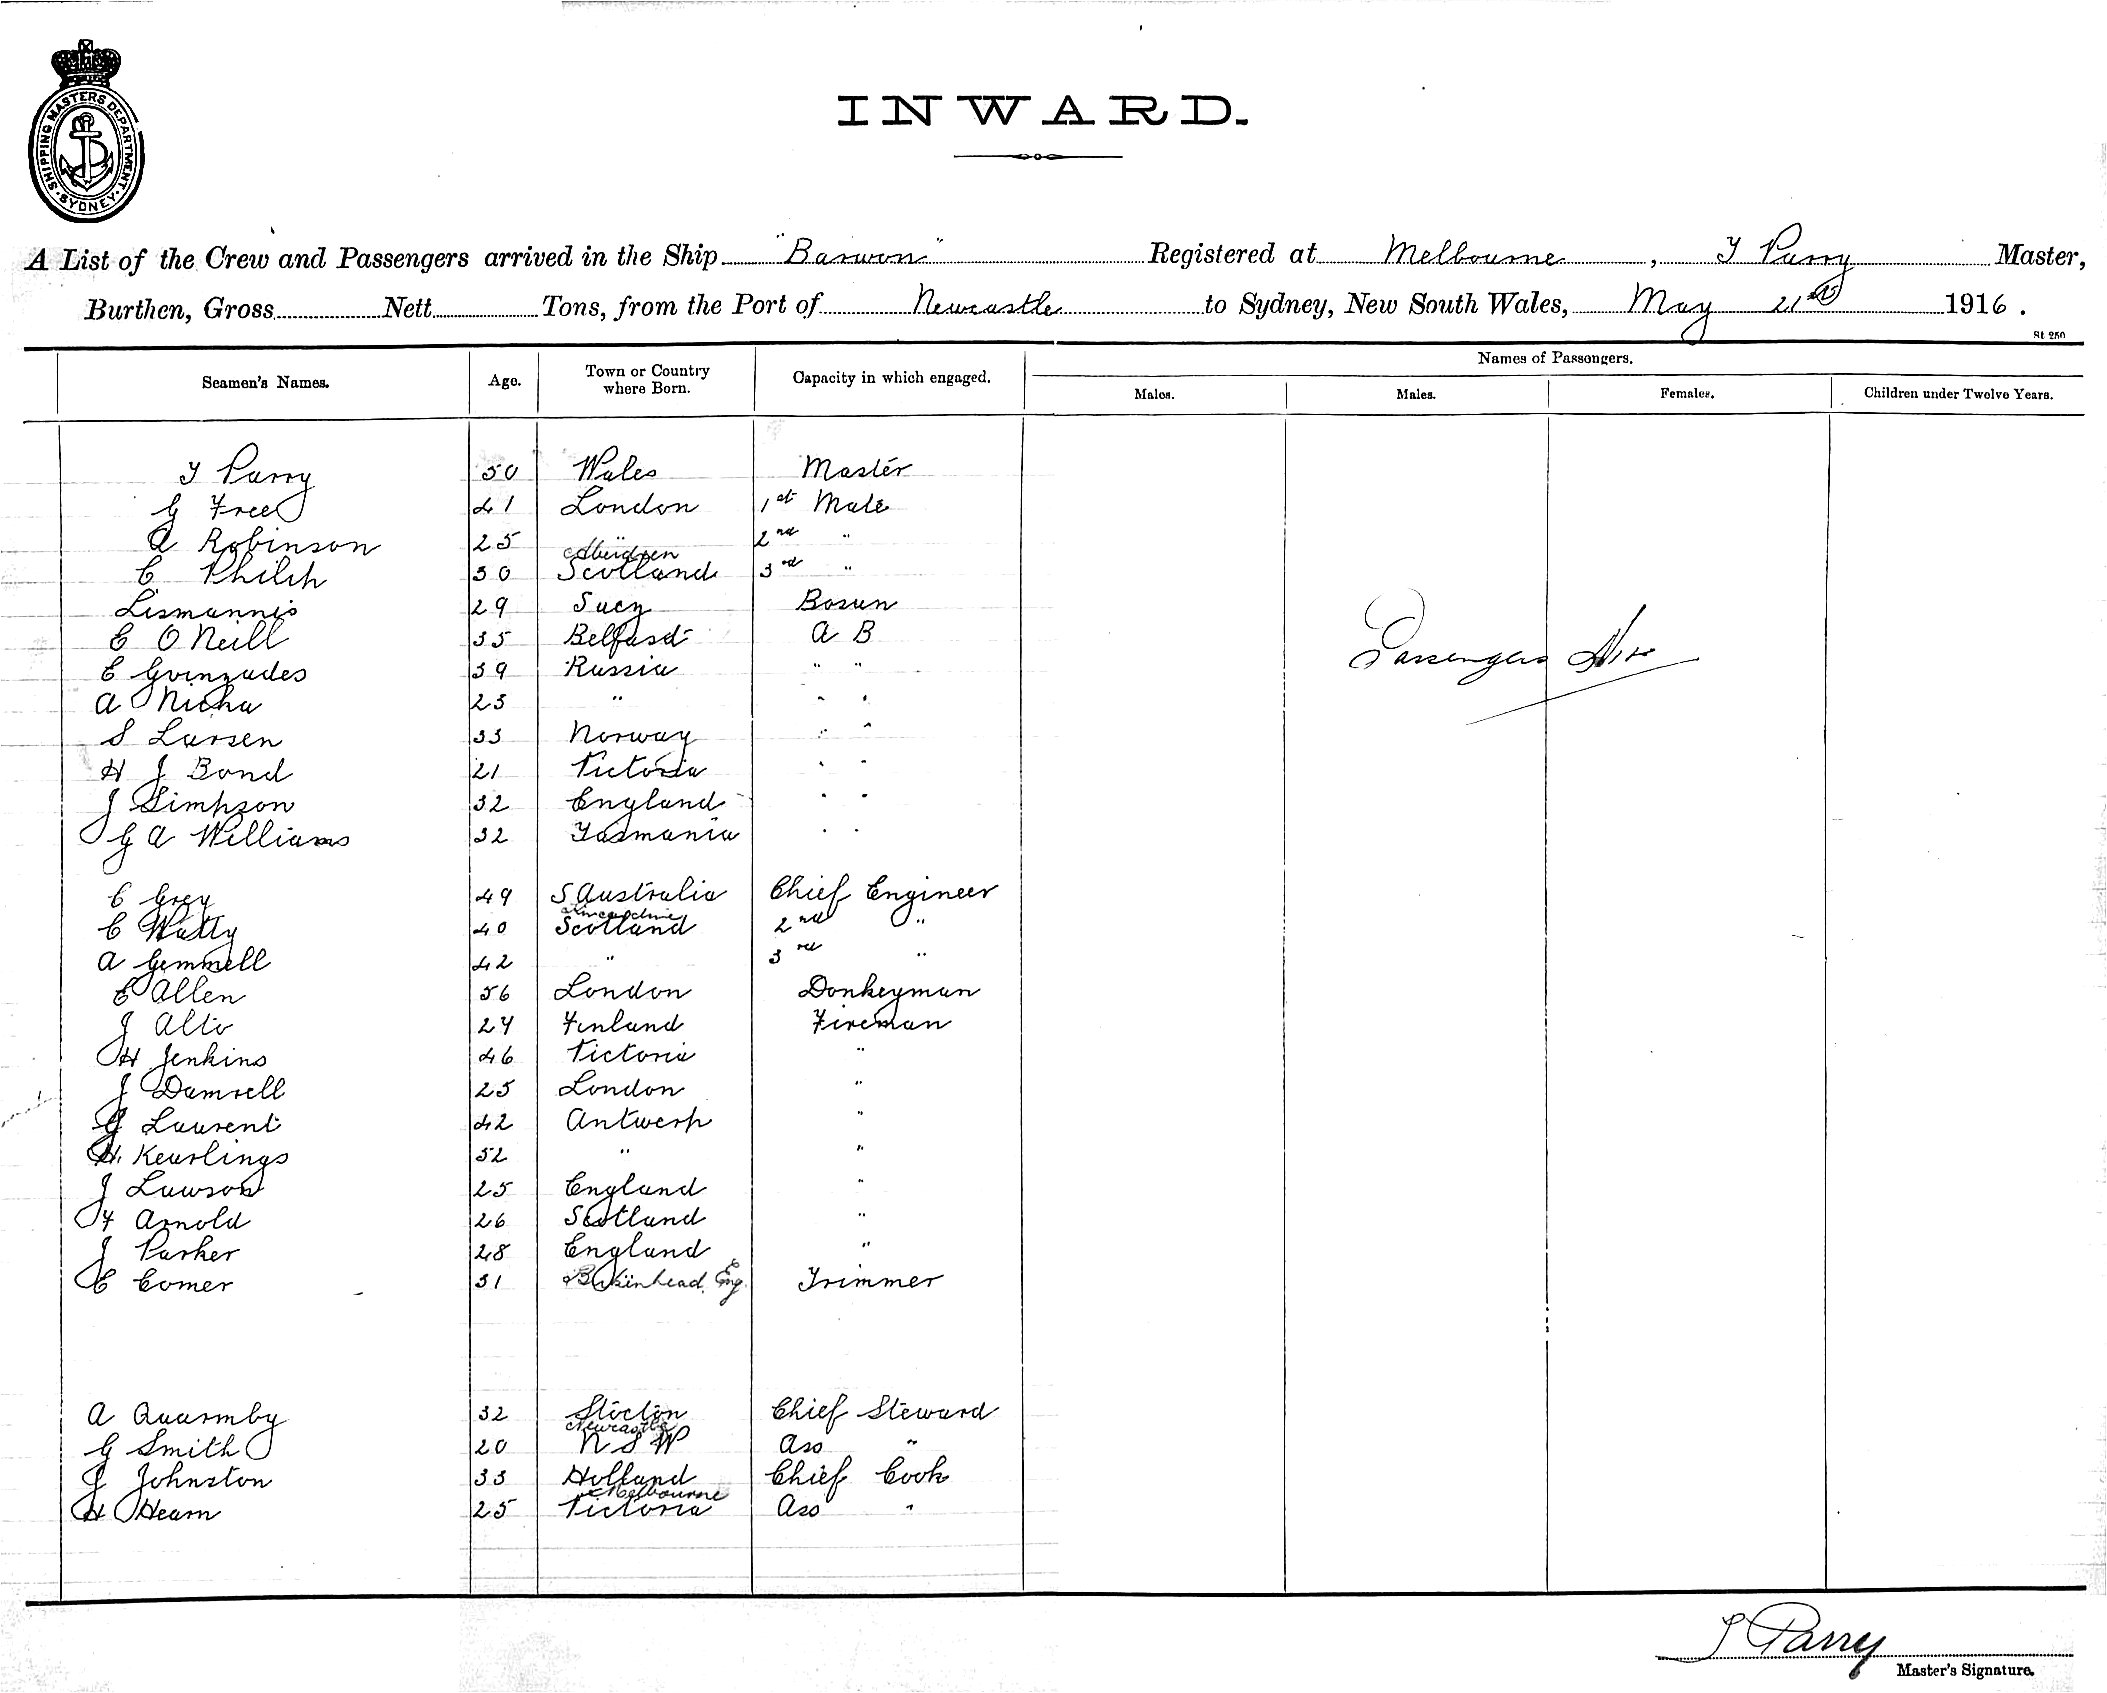 SHIPPING MASTERS DEPARTMENT · SYDNEY ·
INWARD.
A List of the Crew and Passengers arrived in the Ship "Barwon" Registered at Melbourne, T Parry Master,
Burthen, Gross Nett Tons, from the Port of Newcastle to Sydney, New South Wales, May 21st 1916.
St 250
Seamen's Names. Age. Town or Country where Born. Capacity in which engaged. Names of Passengers.
Males. Males. Females. Children under Twelve Years.
T Parry 50 Wales Master
G Free 41 London 1st Mate
A Robinson 25 " 2nd "
C Philip 30 Aberdeen Scotland 3rd "
Lismannis 29 Suez Bosun
C O Neill 35 Belfast A B
E Gvinzudes 39 Russia " "
A Nicha 25 " " "
S Larsen 33 Norway " "
H J Bond 21 Victoria " "
J Simpson 32 England " "
G A Williams 32 Tasmania " "
Passengers Nil
C Grey 49 S Australia Chief Engineer
C Watty 40 Scotland 2nd "
A Gemmell 42 " 3rd "
C Allen 56 London Donkeyman
J Alto 24 Finland Fireman
H Jenkins 46 Victoria "
J Damrell 25 London "
G Laurent 42 Antwerp "
H. Keurlings 52 " "
J Lawson 25 England "
F Arnold 26 Scotland "
J Parker 28 England "
C Comer 31 Birkenhead. Eng. Trimmer
A Quarmby 32 Stocton Chief Steward
G Smith 20 Newcastle N S W Ass "
J Johnston 33 Holland Chief Cook
H Hearn 25 Melbourne Victoria Ass "
T Parry
Master's Signature.